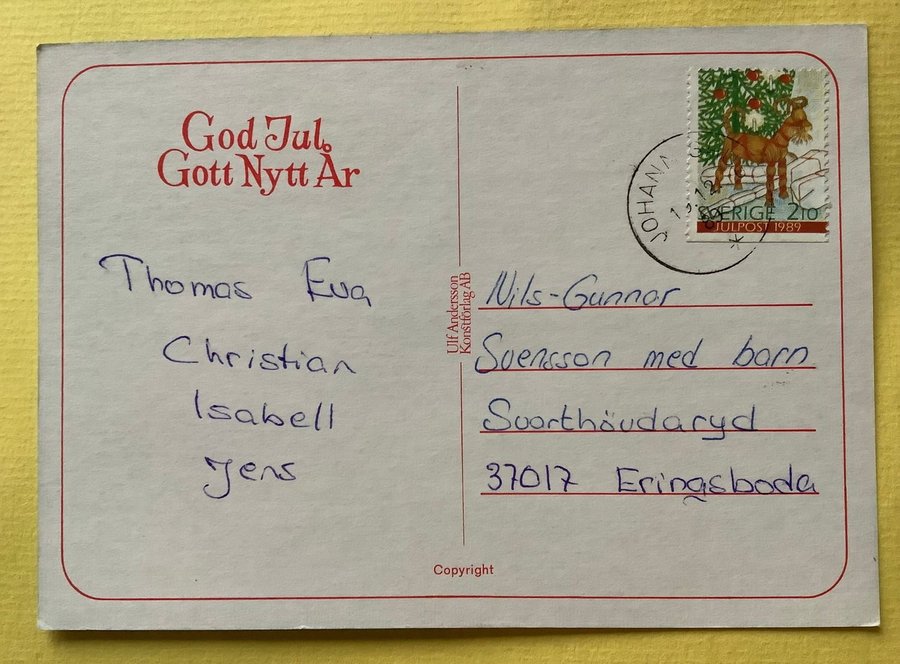 God Jul,
Gott Nytt År
Thomas Eva
Christian
Isabell
Jens
Ulf Andersson
Konstförlag AB
SVERIGE 2.10
JULPOST 1989
Nils-Gunnar
Svensson med barn
Svarthövdaryd
37017 Eringsboda
Copyright